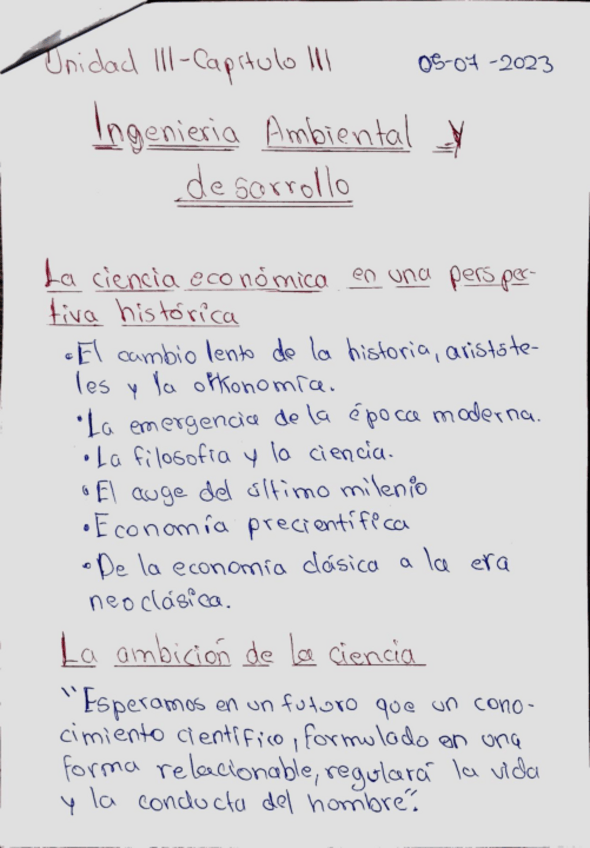 Unidad III - Capítulo III 05-07-2023
Ingenieria Ambiental y
desarrollo
La ciencia económica en una perspec-
tiva histórica
• El cambio lento de la historia, aristóte-
les y la oikonomía.
• La emergencia de la época moderna.
• La filosofía y la ciencia.
• El auge del último milenio
• Economía precientífica
• De la economía clásica a la era
neoclásica.
La ambición de la ciencia
"Esperamos en un futuro que un cono-
cimiento científico, formulado en una
forma relacionable, regulará la vida
y la conducta del hombre".